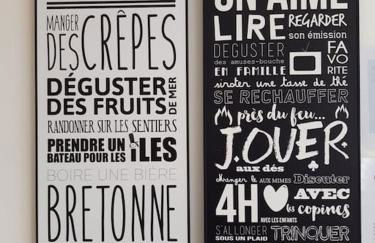 MANGER
DES CRÊPES
DÉGUSTER
DES FRUITS DE MER
RANDONNER SUR LES SENTIERS
PRENDRE UN
BATEAU POUR LES ÎLES
BOIRE UNE BIÈRE
BRETONNE
ON AIME
LIRE REGARDER
son émission
FAVORITE
DEGUSTER
des amuses-bouche
EN FAMILLE
siroter une tasse de thé
SE RECHAUFFER
près du feu...
JOUER
aux dés
Manger AUX MIMES Discuter
4H AVEC
AVEC LES ENFANTS les copines
S'ALLONGER
SOUS UN PLAID TRINQUER